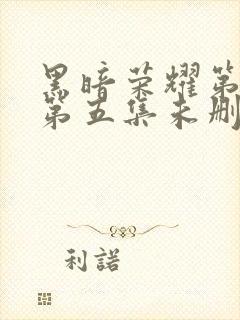 黑暗荣耀第
第五集未删
利諾